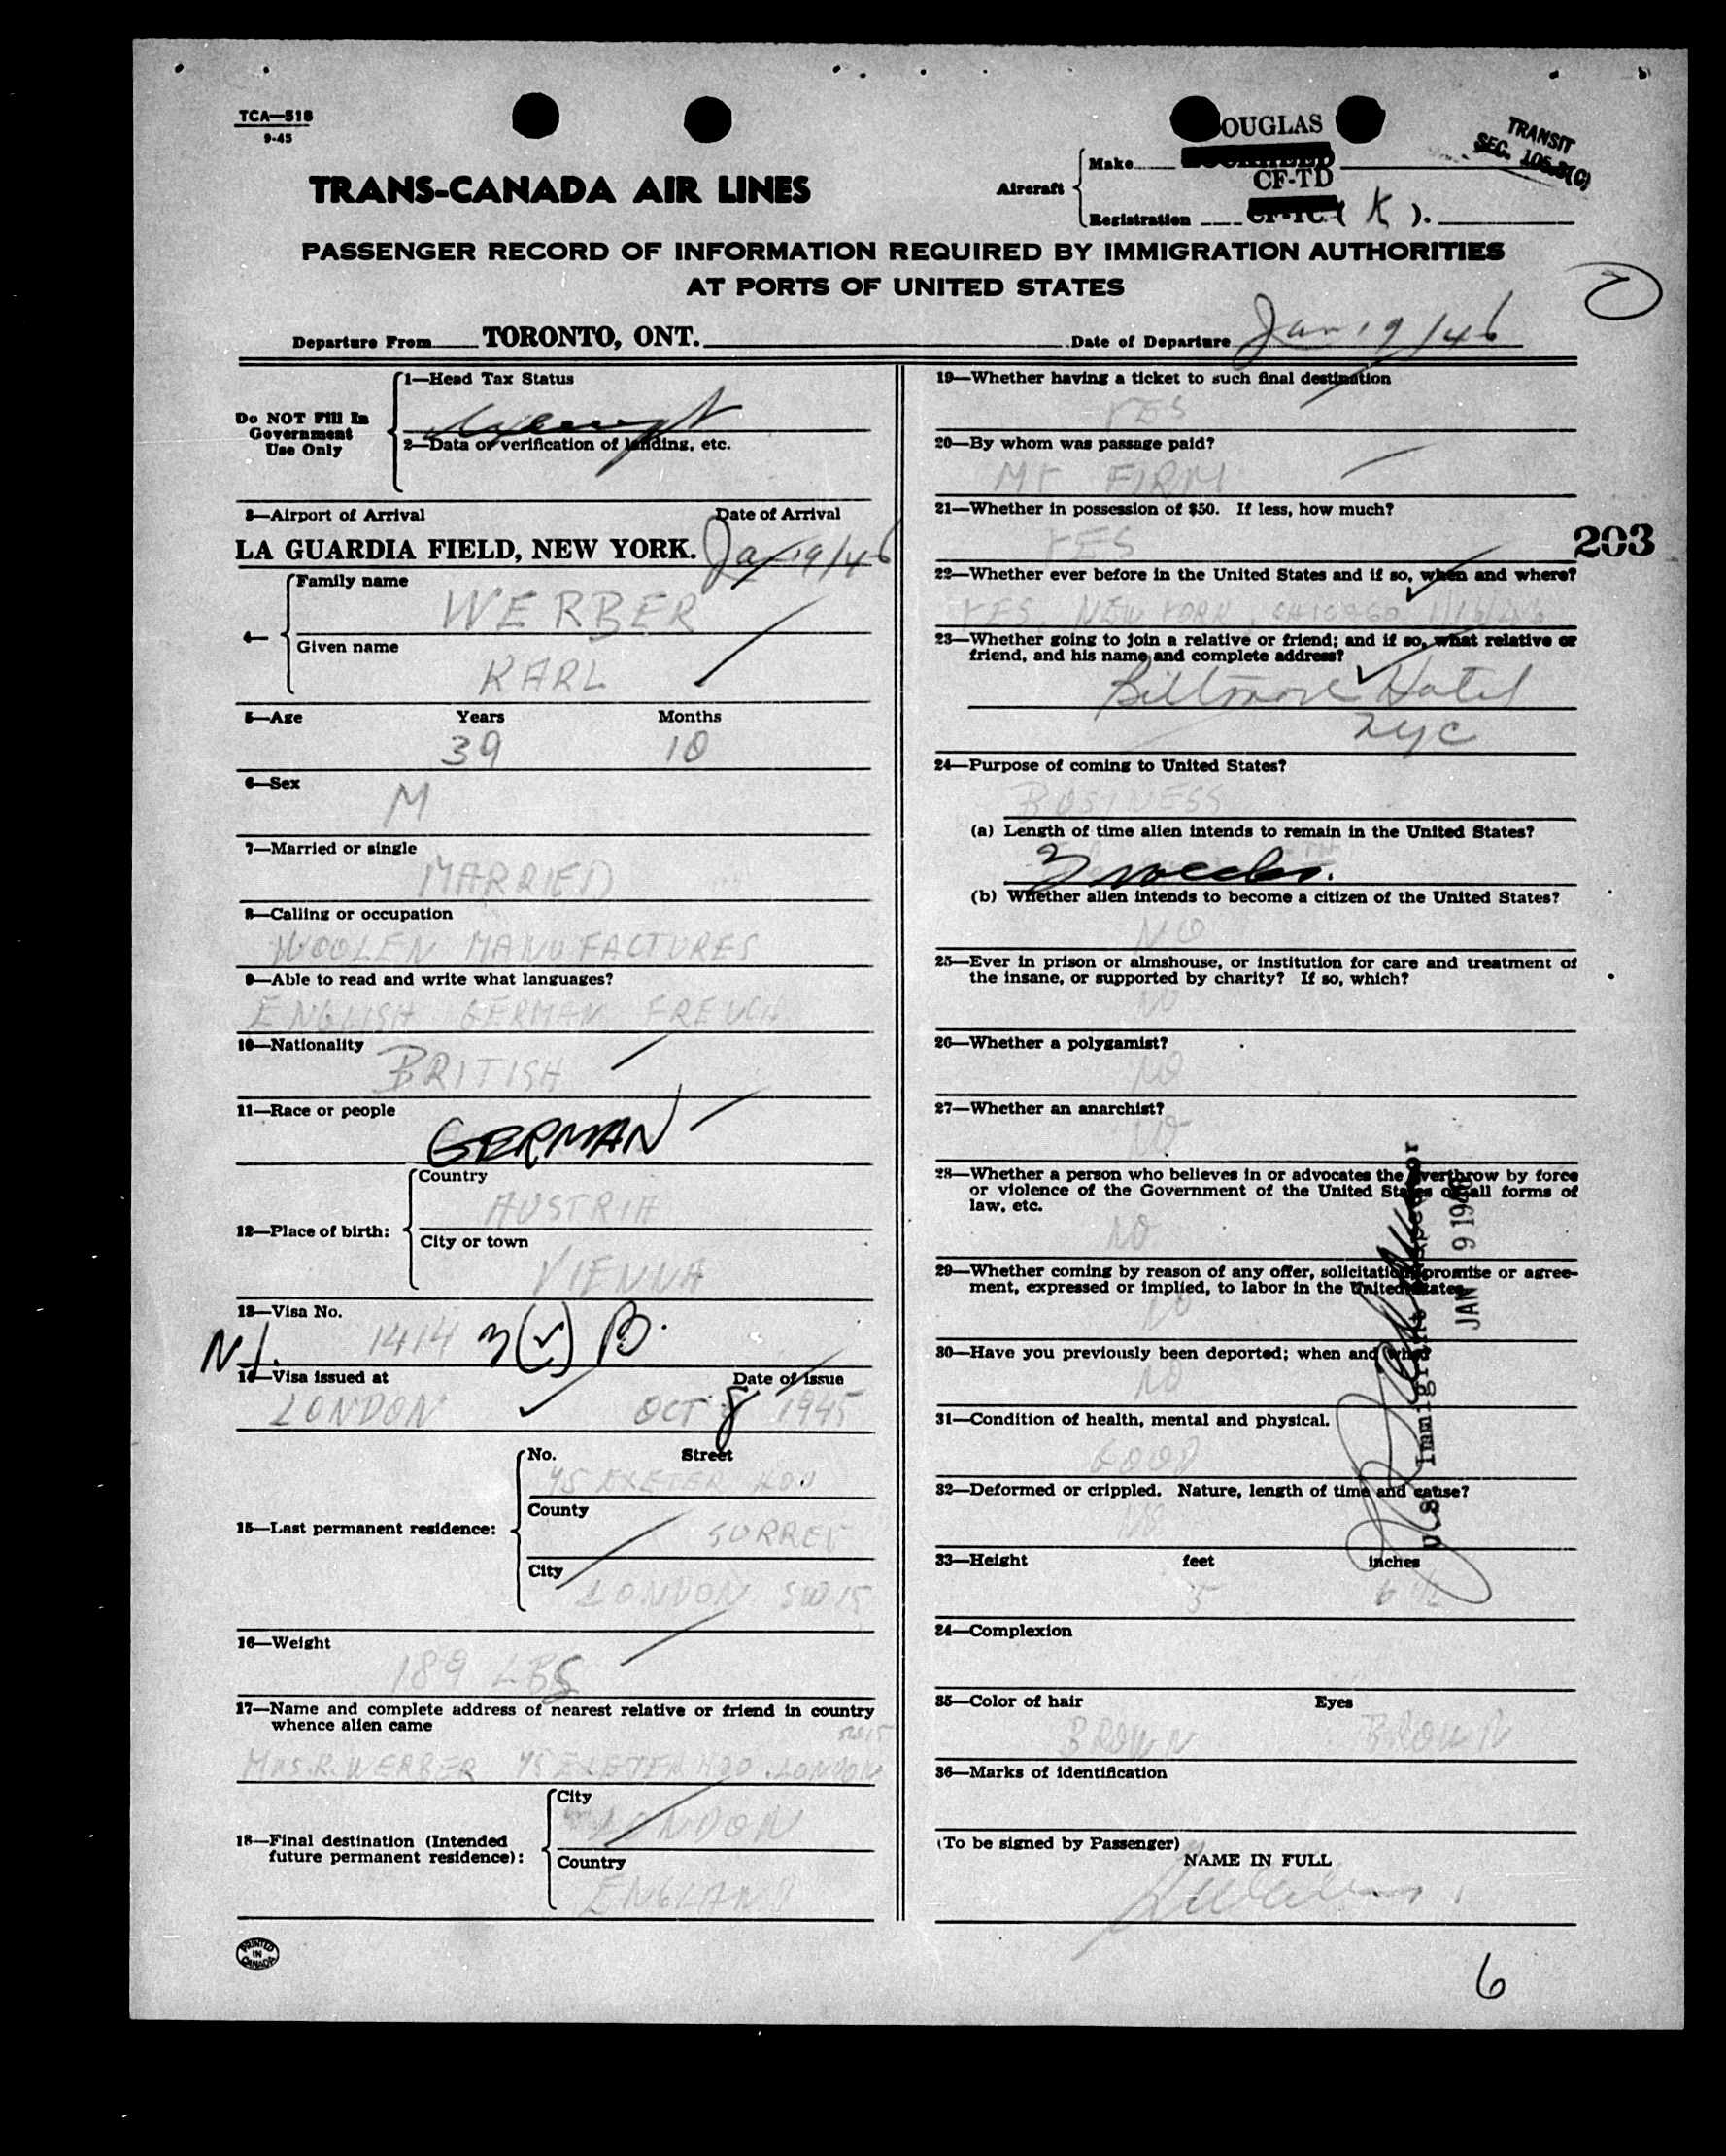 TCA—518
9-45
TRANS-CANADA AIR LINES
Aircraft
Make
OUGLAS
CF-TD
Registration
CF-TC ( K ).
TRANSIT
SEC. 105.3(C)
PASSENGER RECORD OF INFORMATION REQUIRED BY IMMIGRATION AUTHORITIES
AT PORTS OF UNITED STATES
Departure From TORONTO, ONT. Date of Departure Jan 9/46
Do NOT Fill In
Government
Use Only
1—Head Tax Status
2—Data or verification of landing, etc.
3—Airport of Arrival Date of Arrival
LA GUARDIA FIELD, NEW YORK. Jan 9/46
4—
Family name
WERBER
Given name
KARL
5—Age Years Months
39 10
6—Sex
M
7—Married or single
MARRIED
8—Calling or occupation
WOOLEN MANUFACTURES
9—Able to read and write what languages?
ENGLISH GERMAN FRENCH
10—Nationality
BRITISH
11—Race or people
GERMAN
12—Place of birth:
Country
AUSTRIA
City or town
VIENNA
13—Visa No.
1414 3(2) B.
14—Visa issued at Date of issue
LONDON OCT 8 1945
15—Last permanent residence:
No. Street
45 EXETER HOU
County
SURREY
City
LONDON SW15
16—Weight
189 LBS
17—Name and complete address of nearest relative or friend in country
whence alien came
SW15
MRS. R. WERBER 45 EXETER HOU. LONDON
18—Final destination (Intended
future permanent residence):
City
LONDON
Country
ENGLAND
PRINTED
IN
CANADA
19—Whether having a ticket to such final destination
YES
20—By whom was passage paid?
MY FIRM
21—Whether in possession of $50. If less, how much?
YES
203
22—Whether ever before in the United States and if so, when and where?
YES, NEW YORK, CHICAGO
23—Whether going to join a relative or friend; and if so, what relative or
friend, and his name and complete address?
Biltmore Hotel
NYC
24—Purpose of coming to United States?
BUSINESS
(a) Length of time alien intends to remain in the United States?
3 weeks.
(b) Whether alien intends to become a citizen of the United States?
NO
25—Ever in prison or almshouse, or institution for care and treatment of
the insane, or supported by charity? If so, which?
NO
26—Whether a polygamist?
NO
27—Whether an anarchist?
NO
28—Whether a person who believes in or advocates the overthrow by force
or violence of the Government of the United States or all forms of
law, etc.
NO
29—Whether coming by reason of any offer, solicitation, promise or agree-
ment, expressed or implied, to labor in the United States
NO
30—Have you previously been deported; when and why?
NO
31—Condition of health, mental and physical.
GOOD
32—Deformed or crippled. Nature, length of time and cause?
NO
U.S. Immigrant Inspector
JAN 9 1946
33—Height feet inches
5 6 1/2
34—Complexion
35—Color of hair Eyes
BROWN BROWN
36—Marks of identification
(To be signed by Passenger)
NAME IN FULL
6